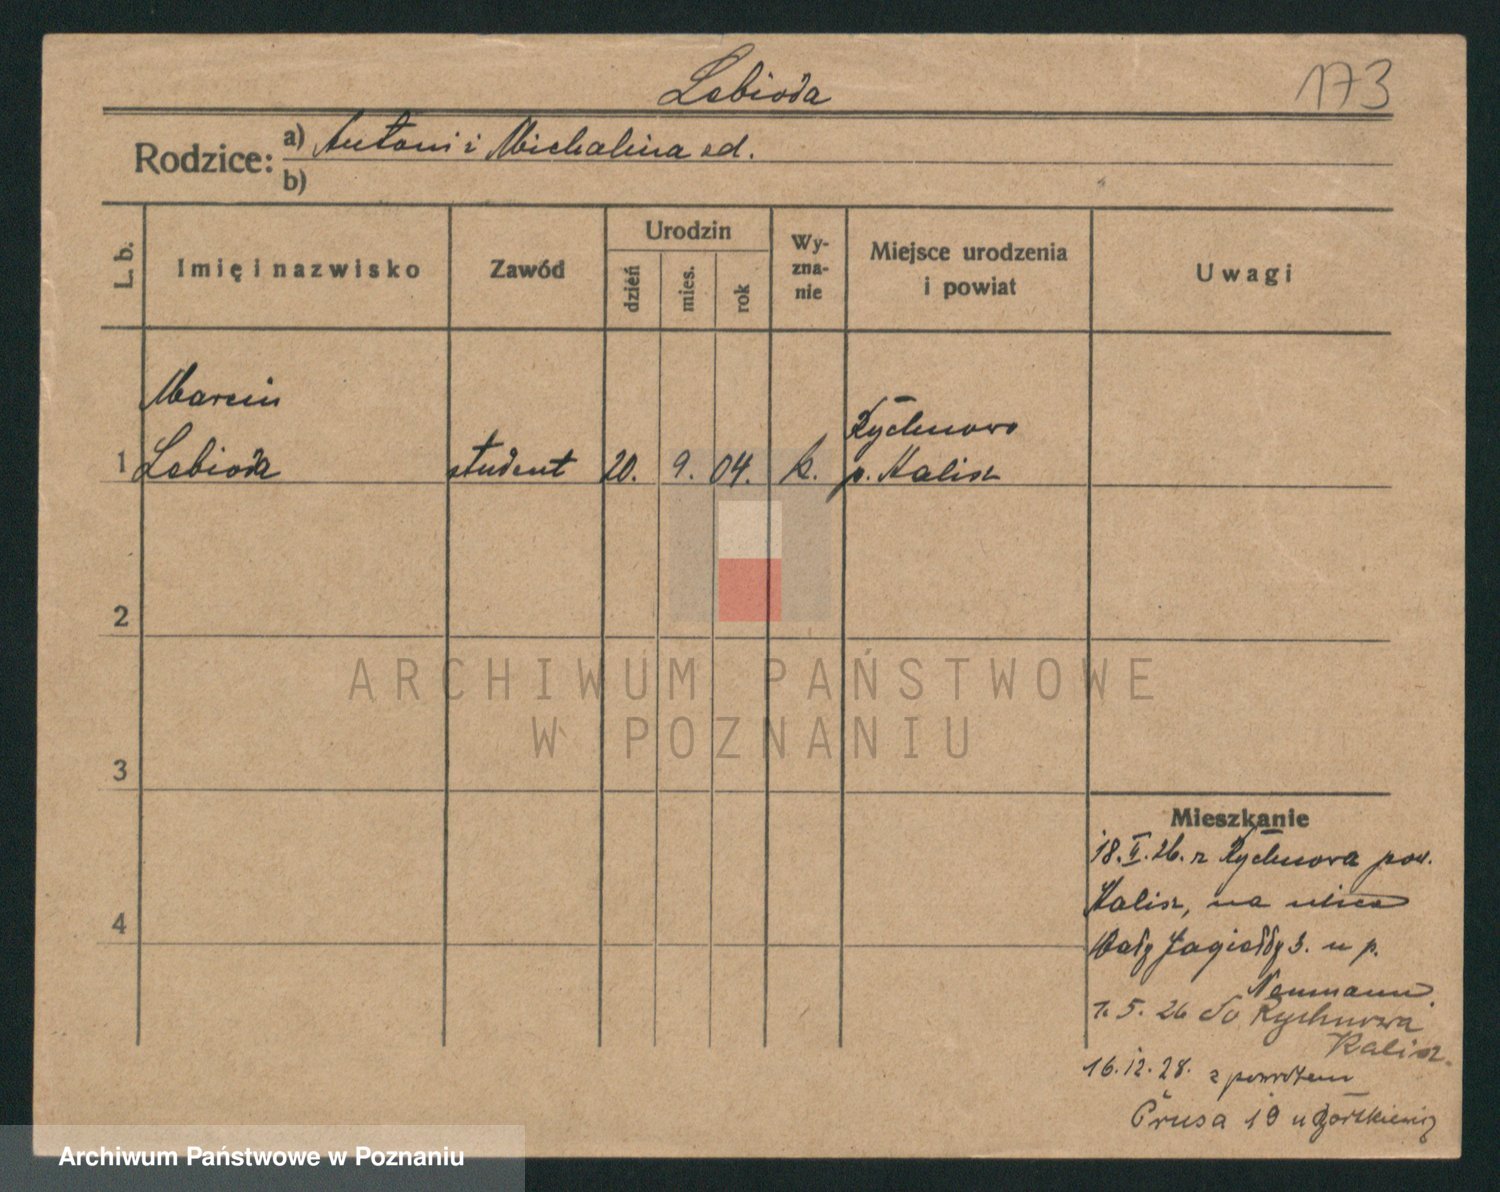 Lebioda
173
Rodzice: a) Antoni i Michalina zd.
b)
L. b.
Imię i nazwisko
Zawód
Urodzin
dzień
mies.
rok
Wy-
zna-
nie
Miejsce urodzenia
i powiat
Uwagi
Marcin
Rychnowo
1 Lebioda student 20. 9. 04. k. p. Kalisz
2
3
4
Mieszkanie
18. II. 26. z Rychnowa pow.
Kalisz, na ulicę
Wały Jagiełły 3. u p.
Neumann.
1. 5. 26 do Rychnowa
Kalisz.
16. 12. 28. z powrotem
Prusa 19 u
ARCHIWUM PAŃSTWOWE
W POZNANIU
Archiwum Państwowe w Poznaniu